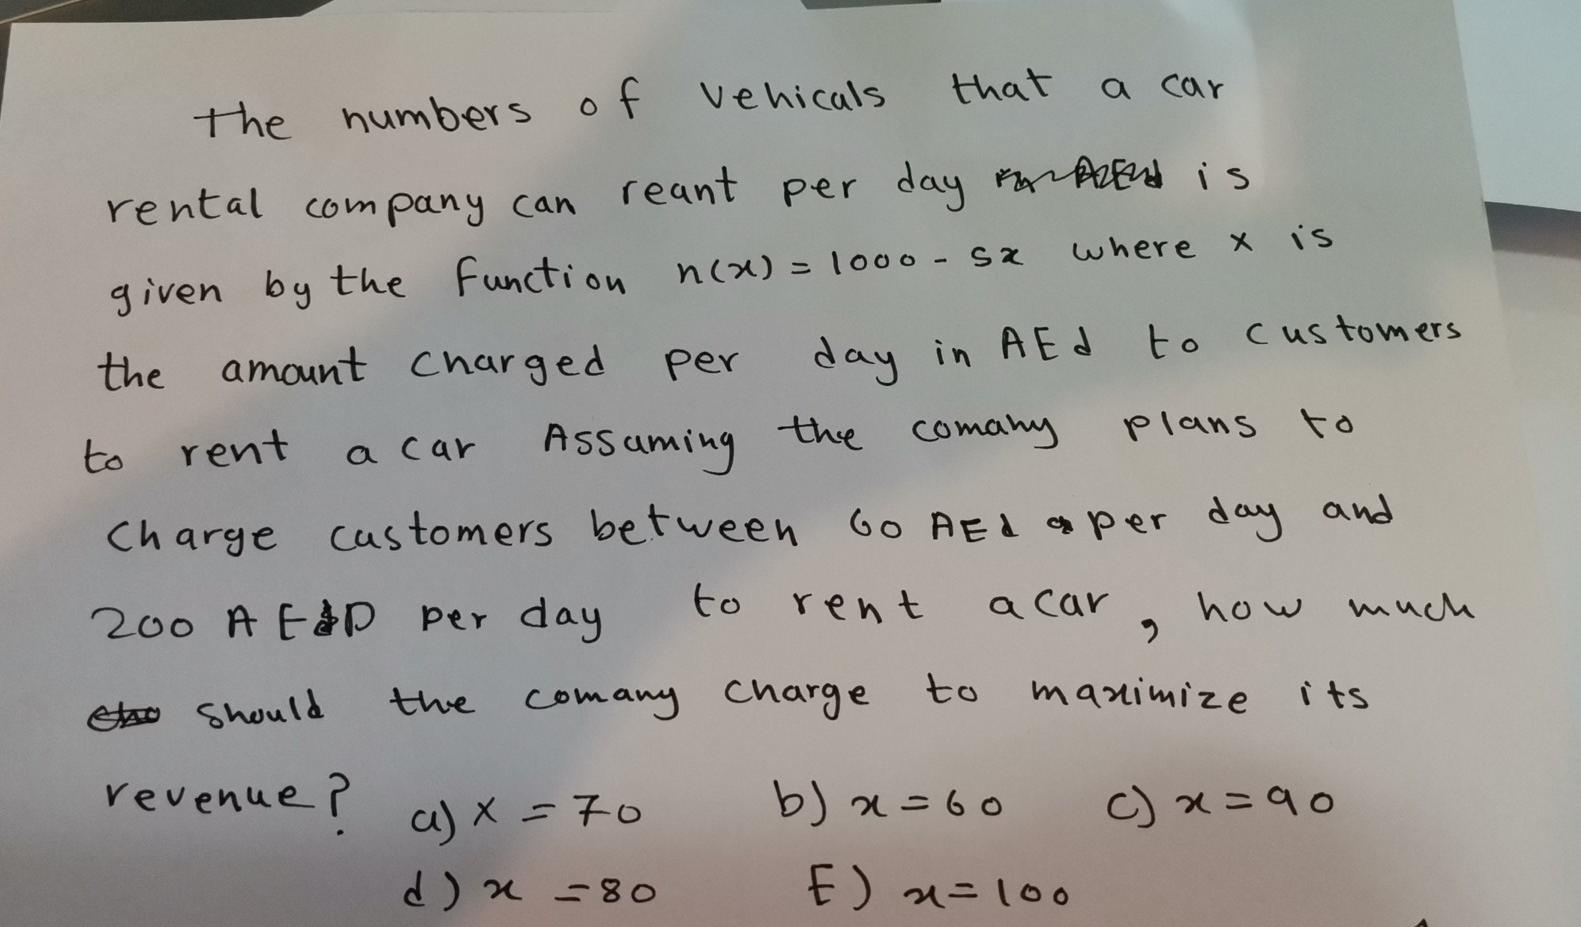 the numbers of vehicals that a car
rental company can reant per day is
given by the function n(x) = 1000 - 5x where x is
the amount charged per day in AEd to customers
to rent a car Assuming the comany plans to
charge customers between 60 AEd per day and
200 AED per day to rent a car, how much
should the comany charge to maximize its
revenue? a) x = 70 b) x = 60 c) x = 90
d) x = 80 E) x = 100